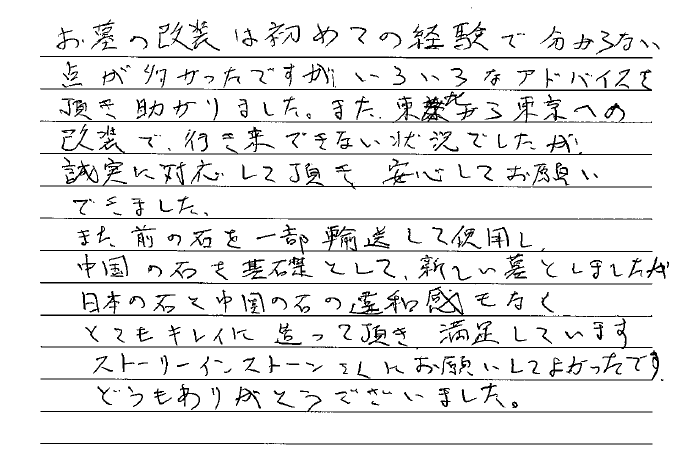 お墓の改装は初めての経験で分からない
点が多かったですが、いろいろなアドバイスを
頂き助かりました。また、東北から東京への
改装で、行き来できない状況でしたが、
誠実に対応して頂き、安心してお願い
できました、
また前の石を一部輸送して使用し、
中国の石を基礎として、新しい墓としましたが
日本の石と中国の石の違和感もなく
とてもキレイに造って頂き、満足しています
ストーリーインストーンさんにお願いしてよかったです。
どうもありがとうございました。